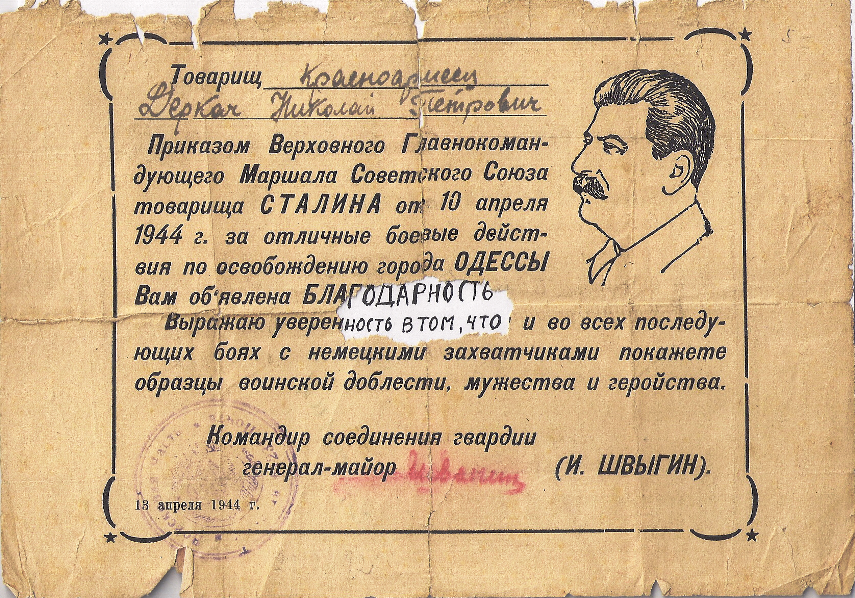 Товарищ красноармеец
Деркач Николай Петрович
Приказом Верховного Главнокоман-
дующего Маршала Советского Союза
товарища СТАЛИНА от 10 апреля
1944 г. за отличные боевые дейст-
вия по освобождению города ОДЕССЫ
Вам об'явлена БЛАГОДАРНОСТЬ
Выражаю уверенность В ТОМ, ЧТО и во всех последу-
ющих боях с немецкими захватчиками покажете
образцы воинской доблести, мужества и геройства.
Командир соединения гвардии
генерал-майор (И. ШВЫГИН).
13 апреля 1944 г.